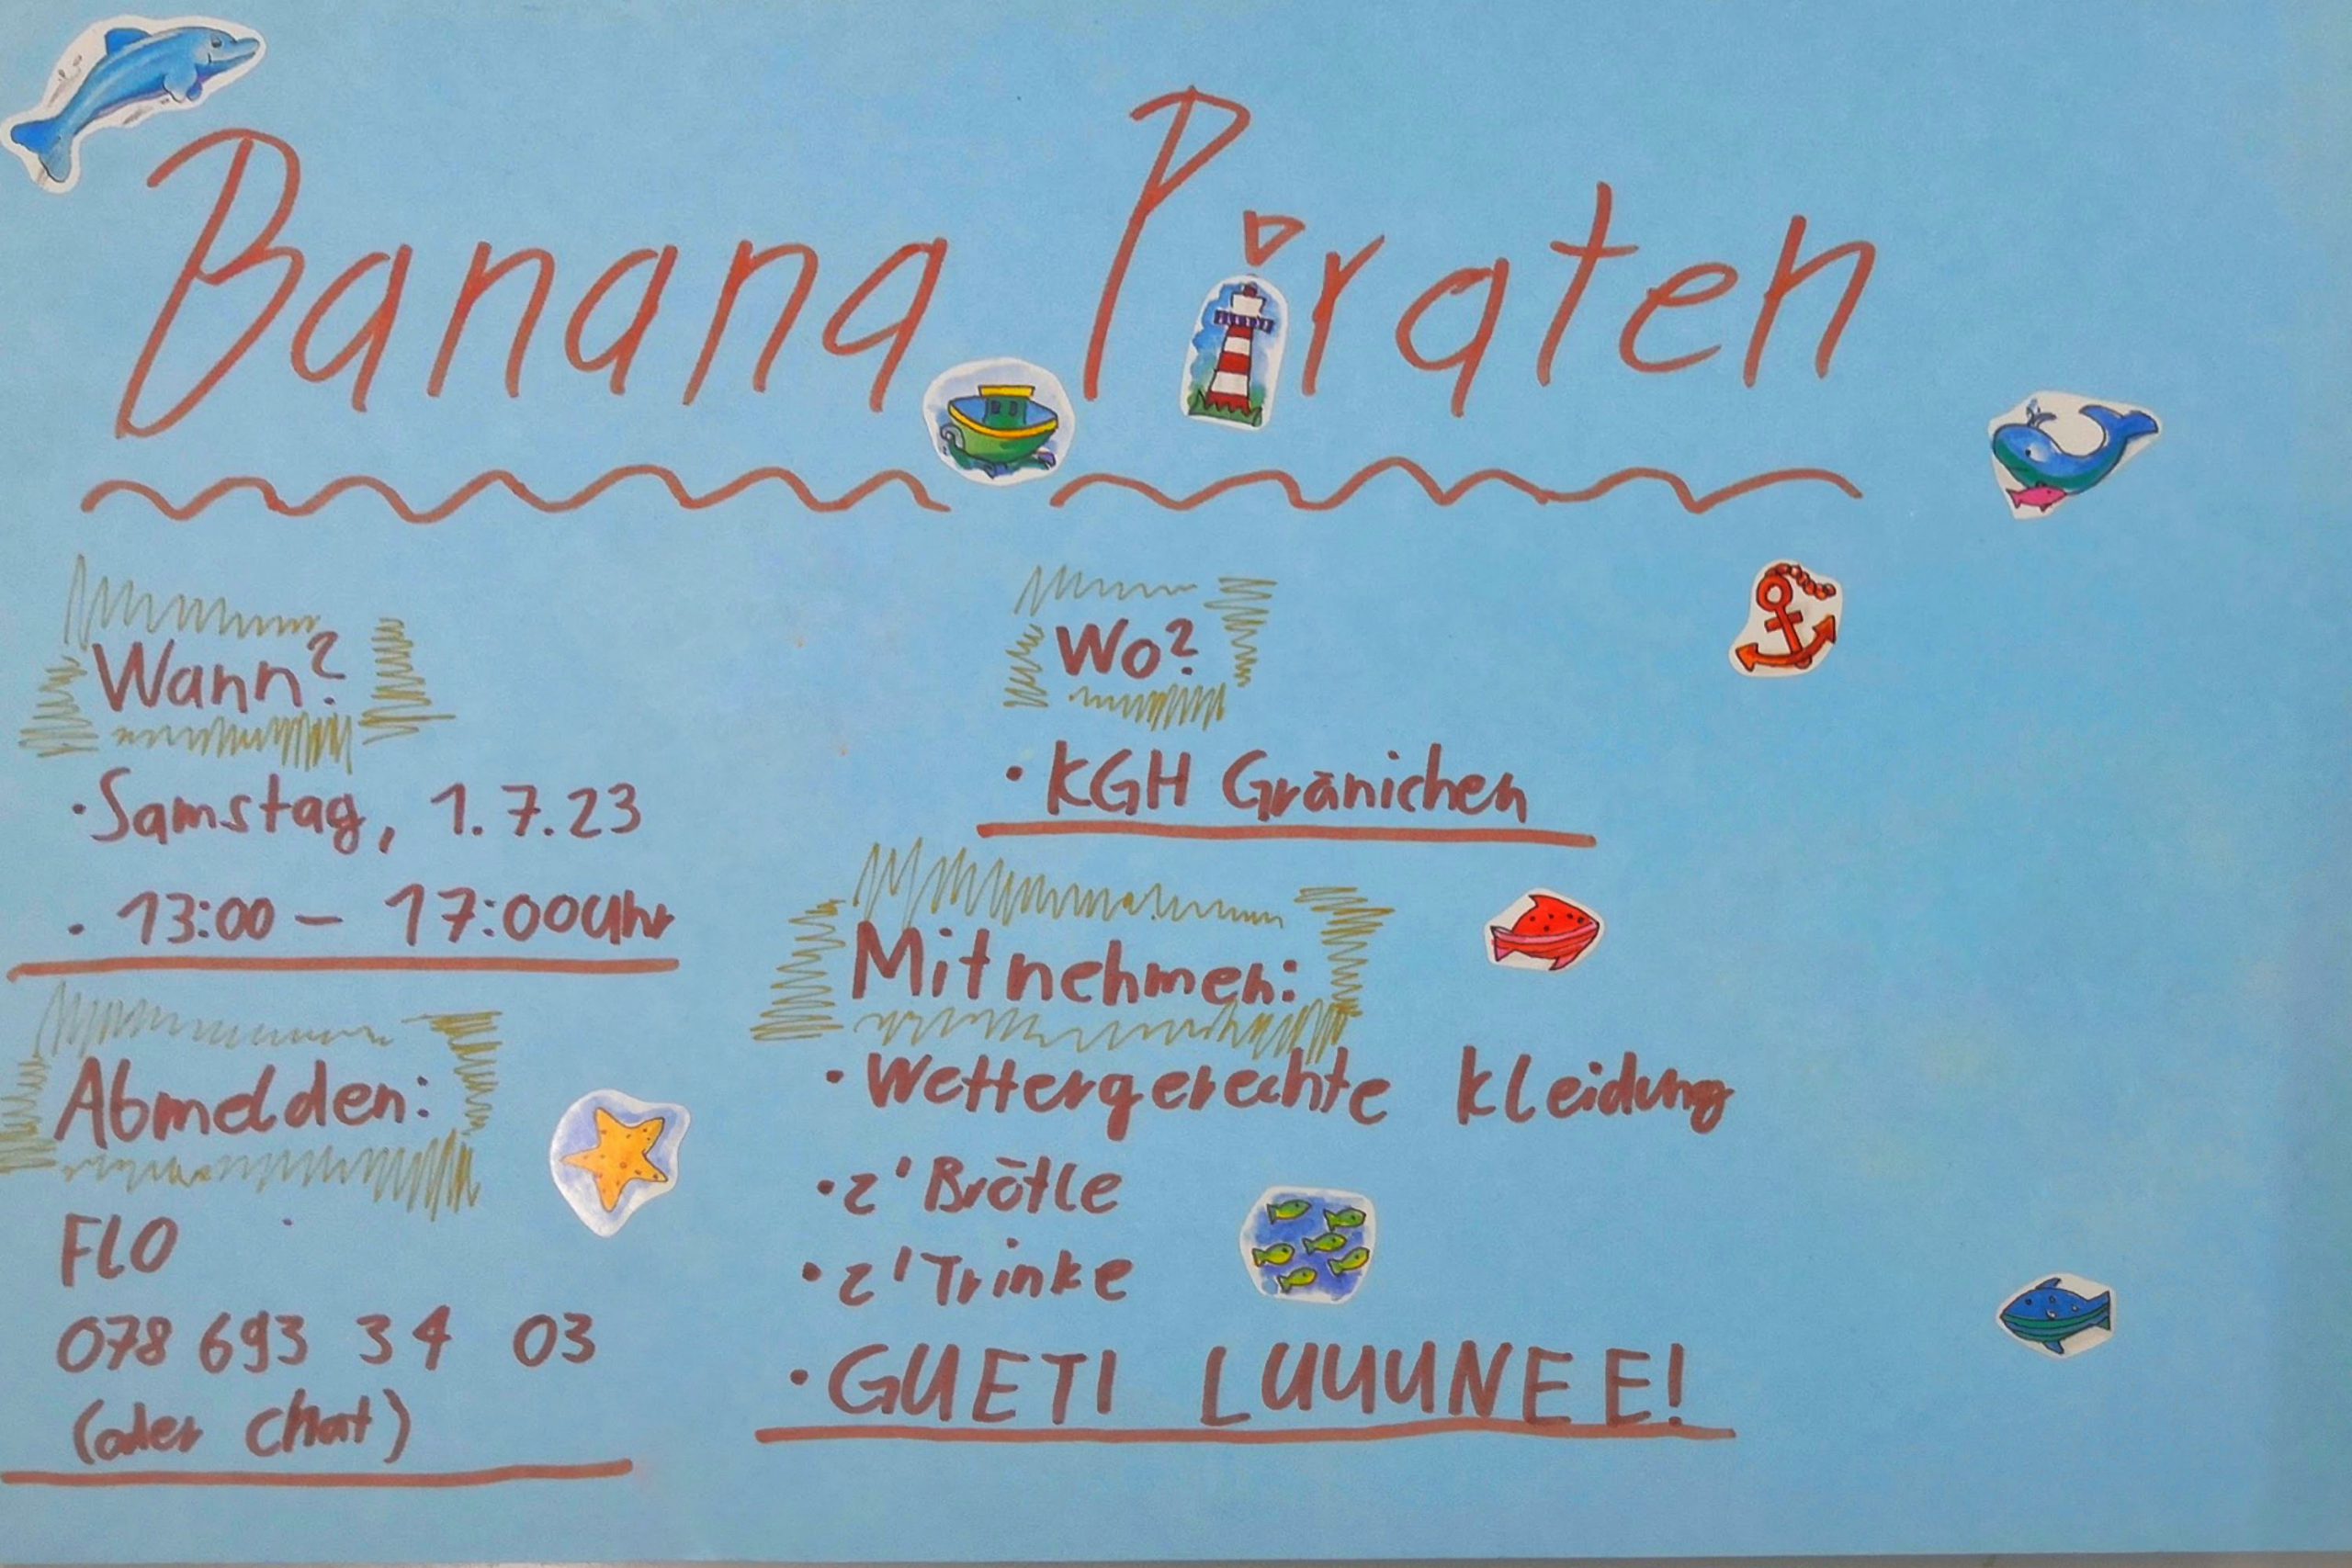 Banana Piraten
Wann?
• Samstag, 1.7.23
• 13:00 – 17:00 Uhr
Abmelden:
FLO
078 693 34 03
(oder Chat)
Wo?
• KGH Gränichen
Mitnehmen:
• Wettergerechte Kleidung
• z'Brötle
• z'Trinke
• GUETI LUUUNEE!